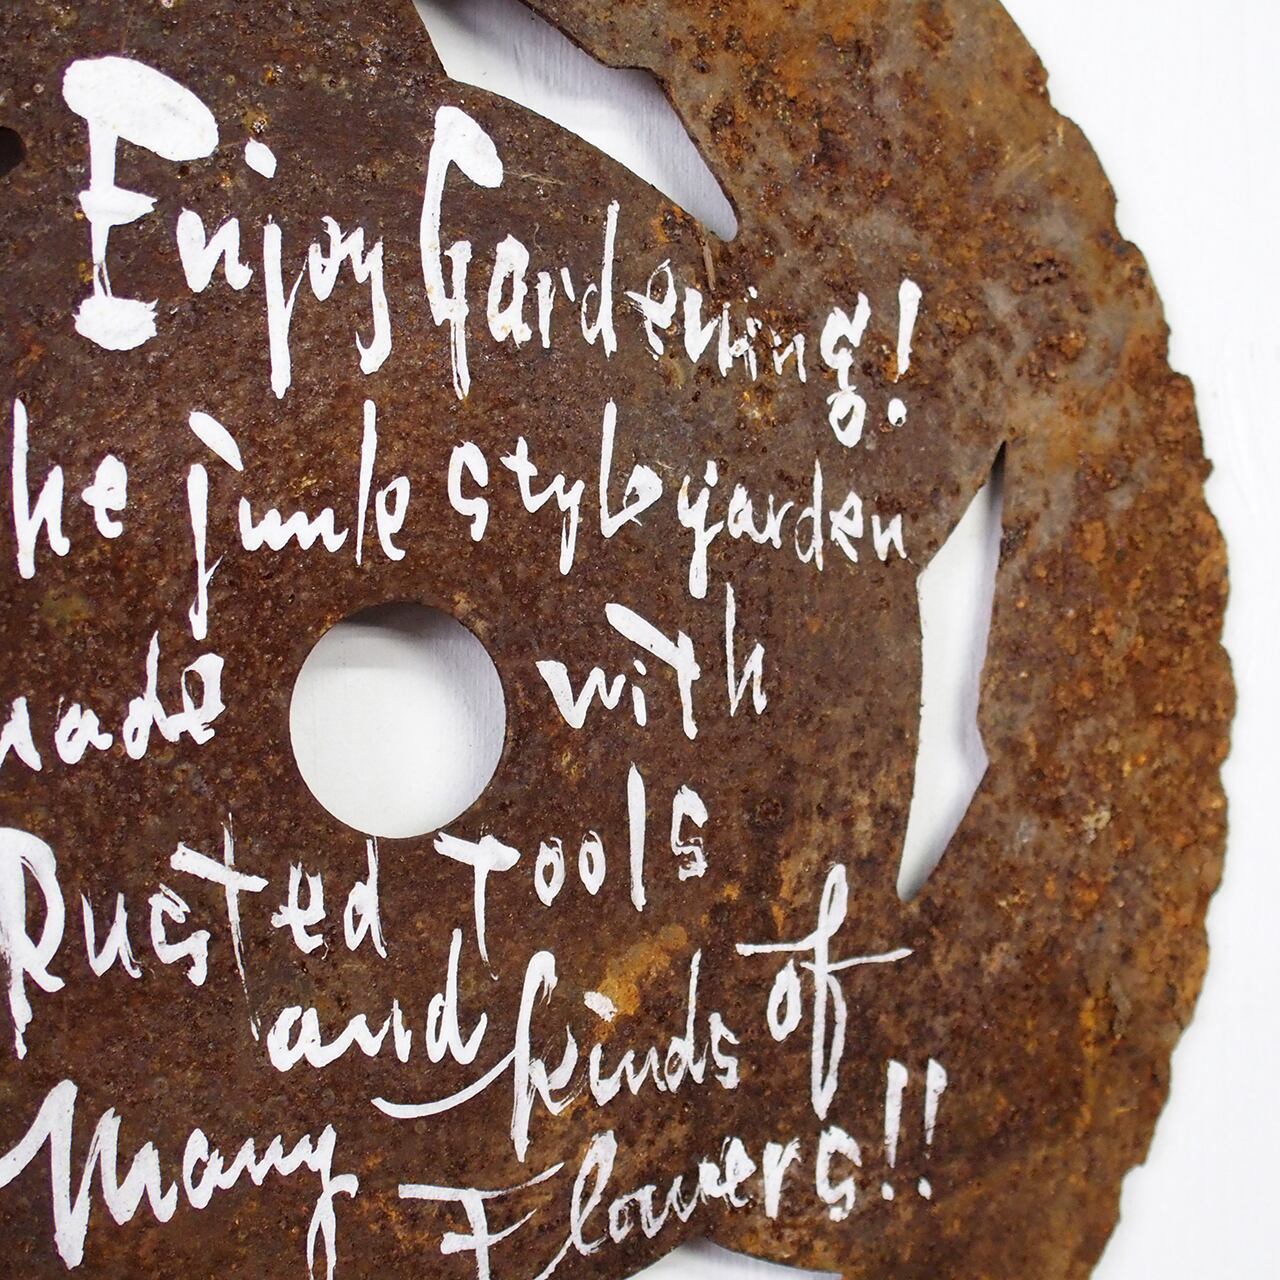 Enjoy Gardening!
he junk style garden
made with
Rusted Tools
and kinds of
Many Flowers!!